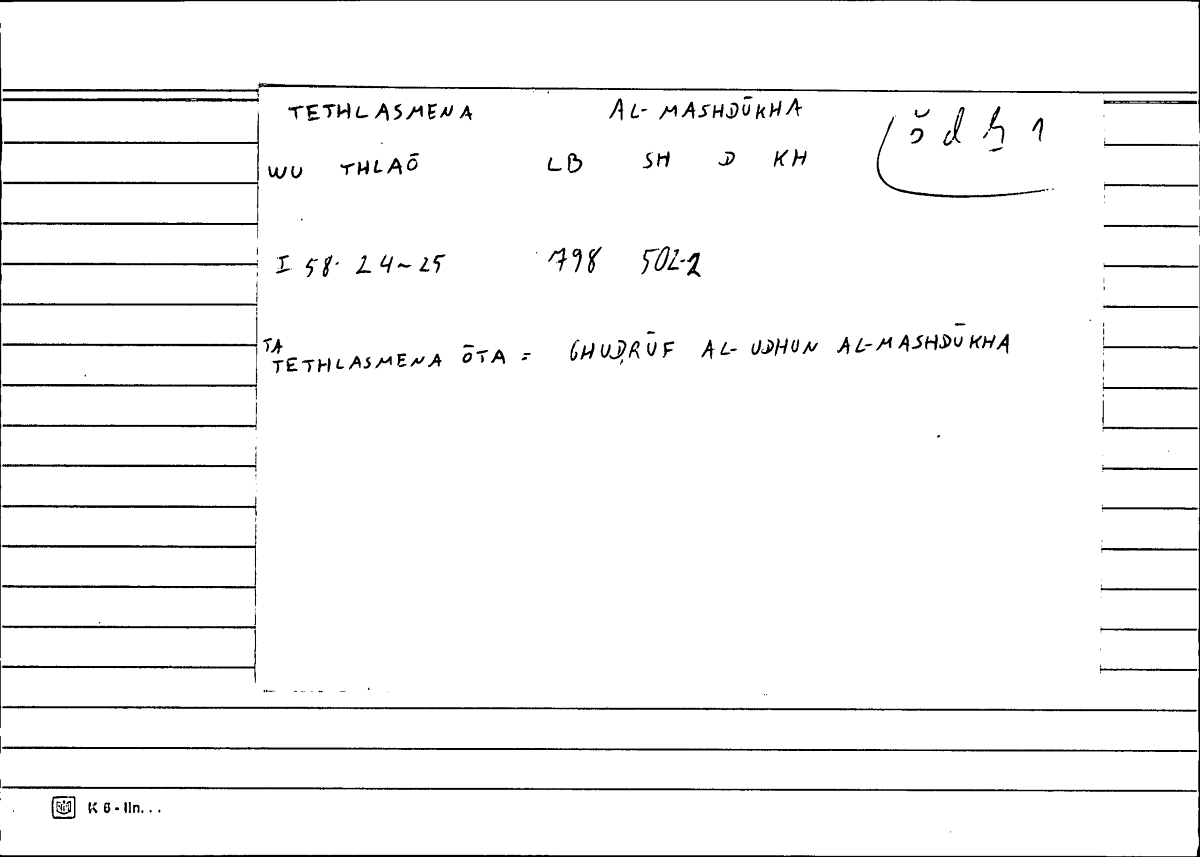 TETHLASMENA AL-MASHDŪKHA
WU THLAŌ LB SH D KH
I 58. 24~25 798 502-2
TA
TETHLASMENA ŌTA = GHUḌRŪF AL-UDHUN AL-MASHDŪKHA
K 6 - lin...